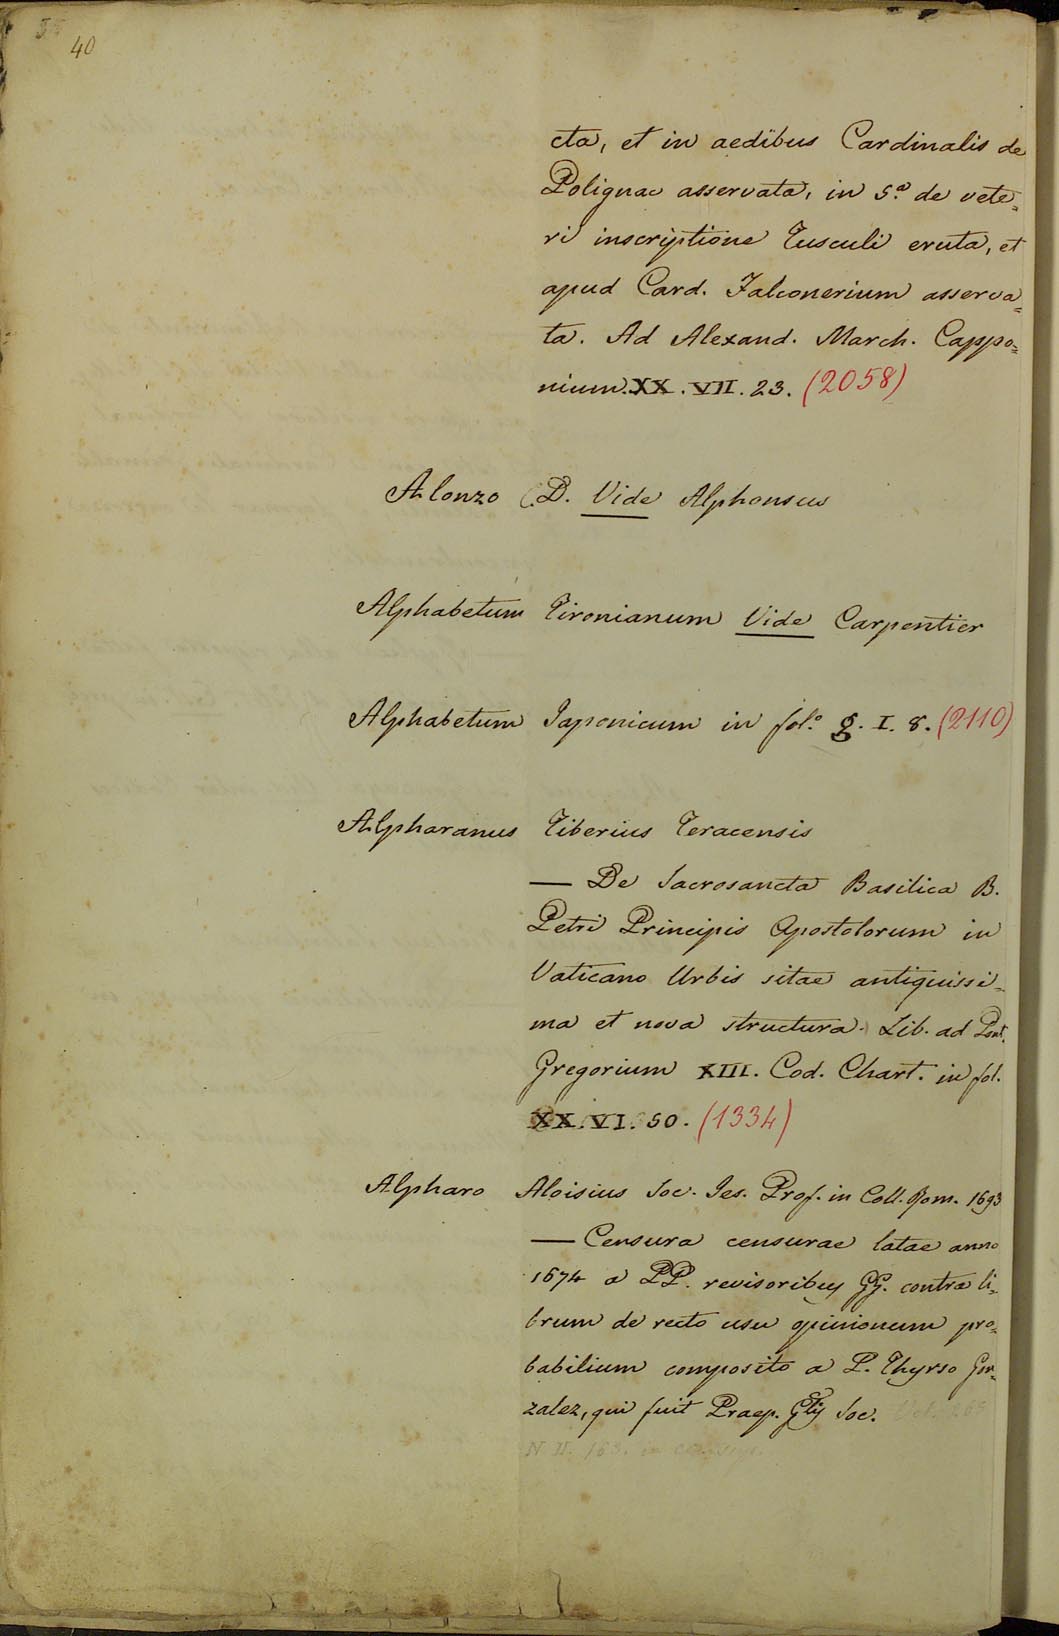 40
cta, et in aedibus Cardinalis de
Polignac asservata, in 5.ª de vete=
ri inscriptione Tusculi eruta, et
apud Card. Falconerium asserva=
ta. Ad Alexand. March. Cappo=
nium. XX. VII. 23. (2058)
Alonzo (D. Vide Alphonsus
Alphabetum Tironianum Vide Carpentier
Alphabetum Japonicum in fol.º g. I. 8. (2110)
Alpharanus Tiberius Teracensis
— De Sacrosancta Basilica B.
Petri Principis Apostolorum in
Vaticano Urbis sitae antiquissi=
ma et nova structura. Lib. ad Pont.
Gregorium XIII. Cod. Chart. in fol.
XX. VI. 50. (1334)
Alpharo Aloisius Soc. Jes. Prof. in Coll. Rom. 1693
— Censura censurae latae anno
1674 a PP. revisoribus GG. contra li=
brum de recto usu opinionum pro=
babilium composito a P. Thyrso Gon=
zalez, qui fuit Praep. Glis Soc.
N II. 163.